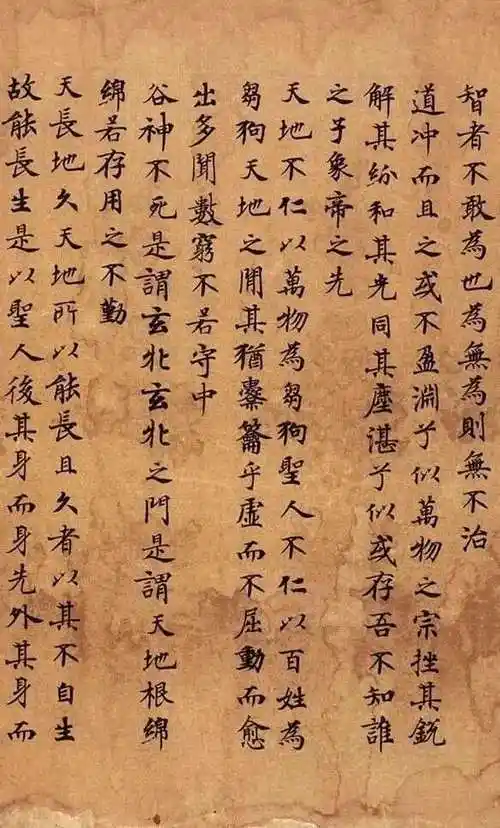 智者不敢為也為無為則無不治
道冲而且之或不盈淵兮似萬物之宗挫其銳
解其紛和其光同其塵湛兮似或存吾不知誰
之子象帝之先
天地不仁以萬物為芻狗聖人不仁以百姓為
芻狗天地之間其猶橐籥乎虛而不屈動而愈
出多聞數窮不若守中
谷神不死是謂玄牝玄牝之門是謂天地根綿
綿若存用之不勤
天長地久天地所以能長且久者以其不自生
故能長生是以聖人後其身而身先外其身而